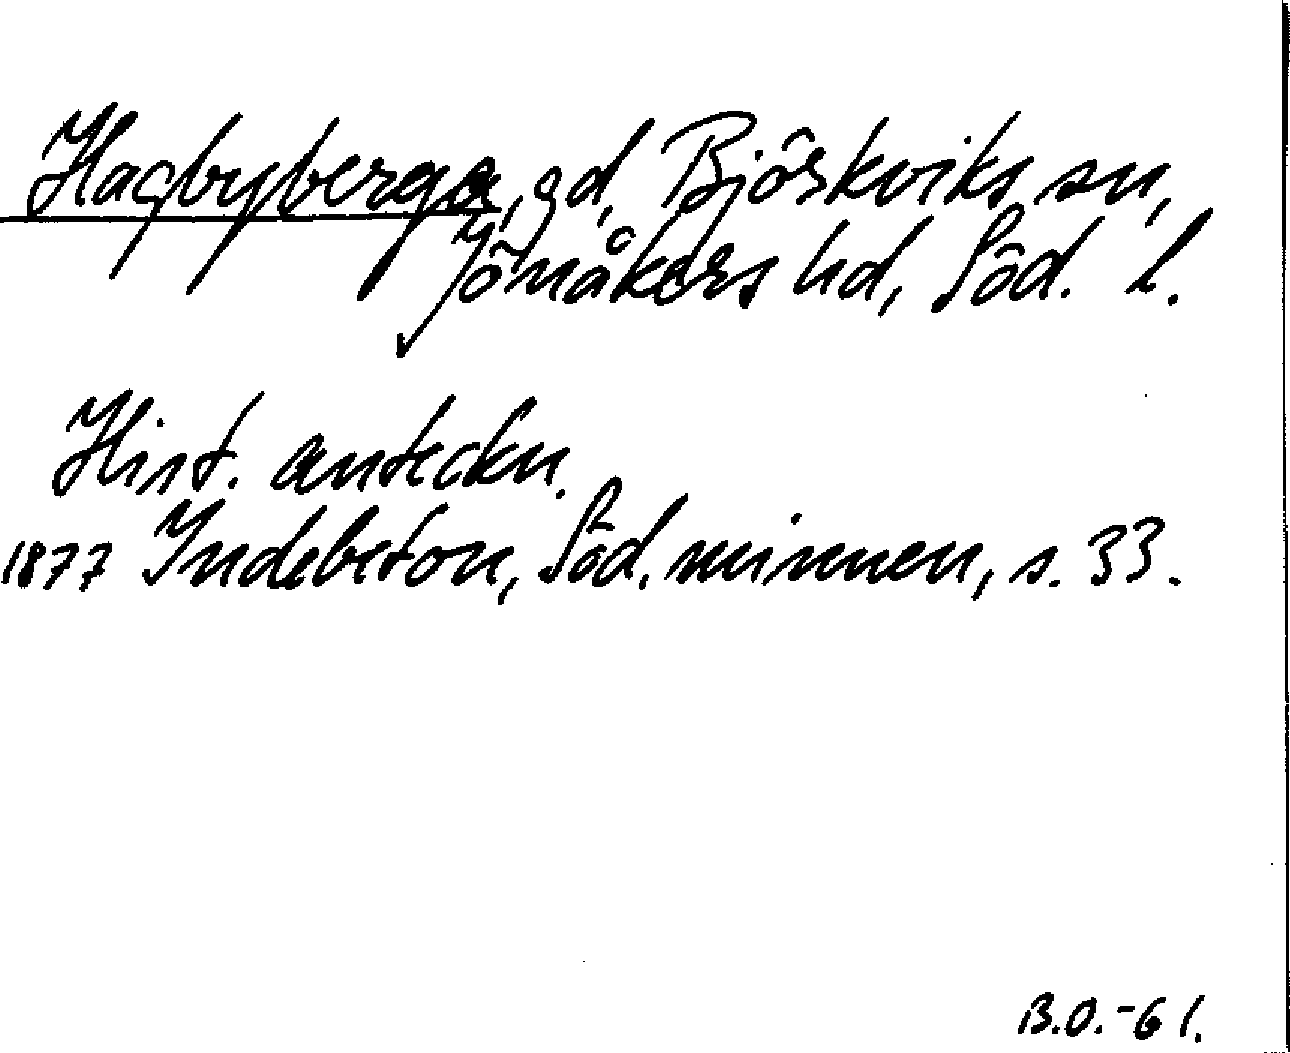 Hagbyberga, gd, Björkviks sn,
Jönåkers hd, Söd. l.
Hist. anteckn.
1877 Indebetou, Söd. minnen, s. 33.
B.O.-61.